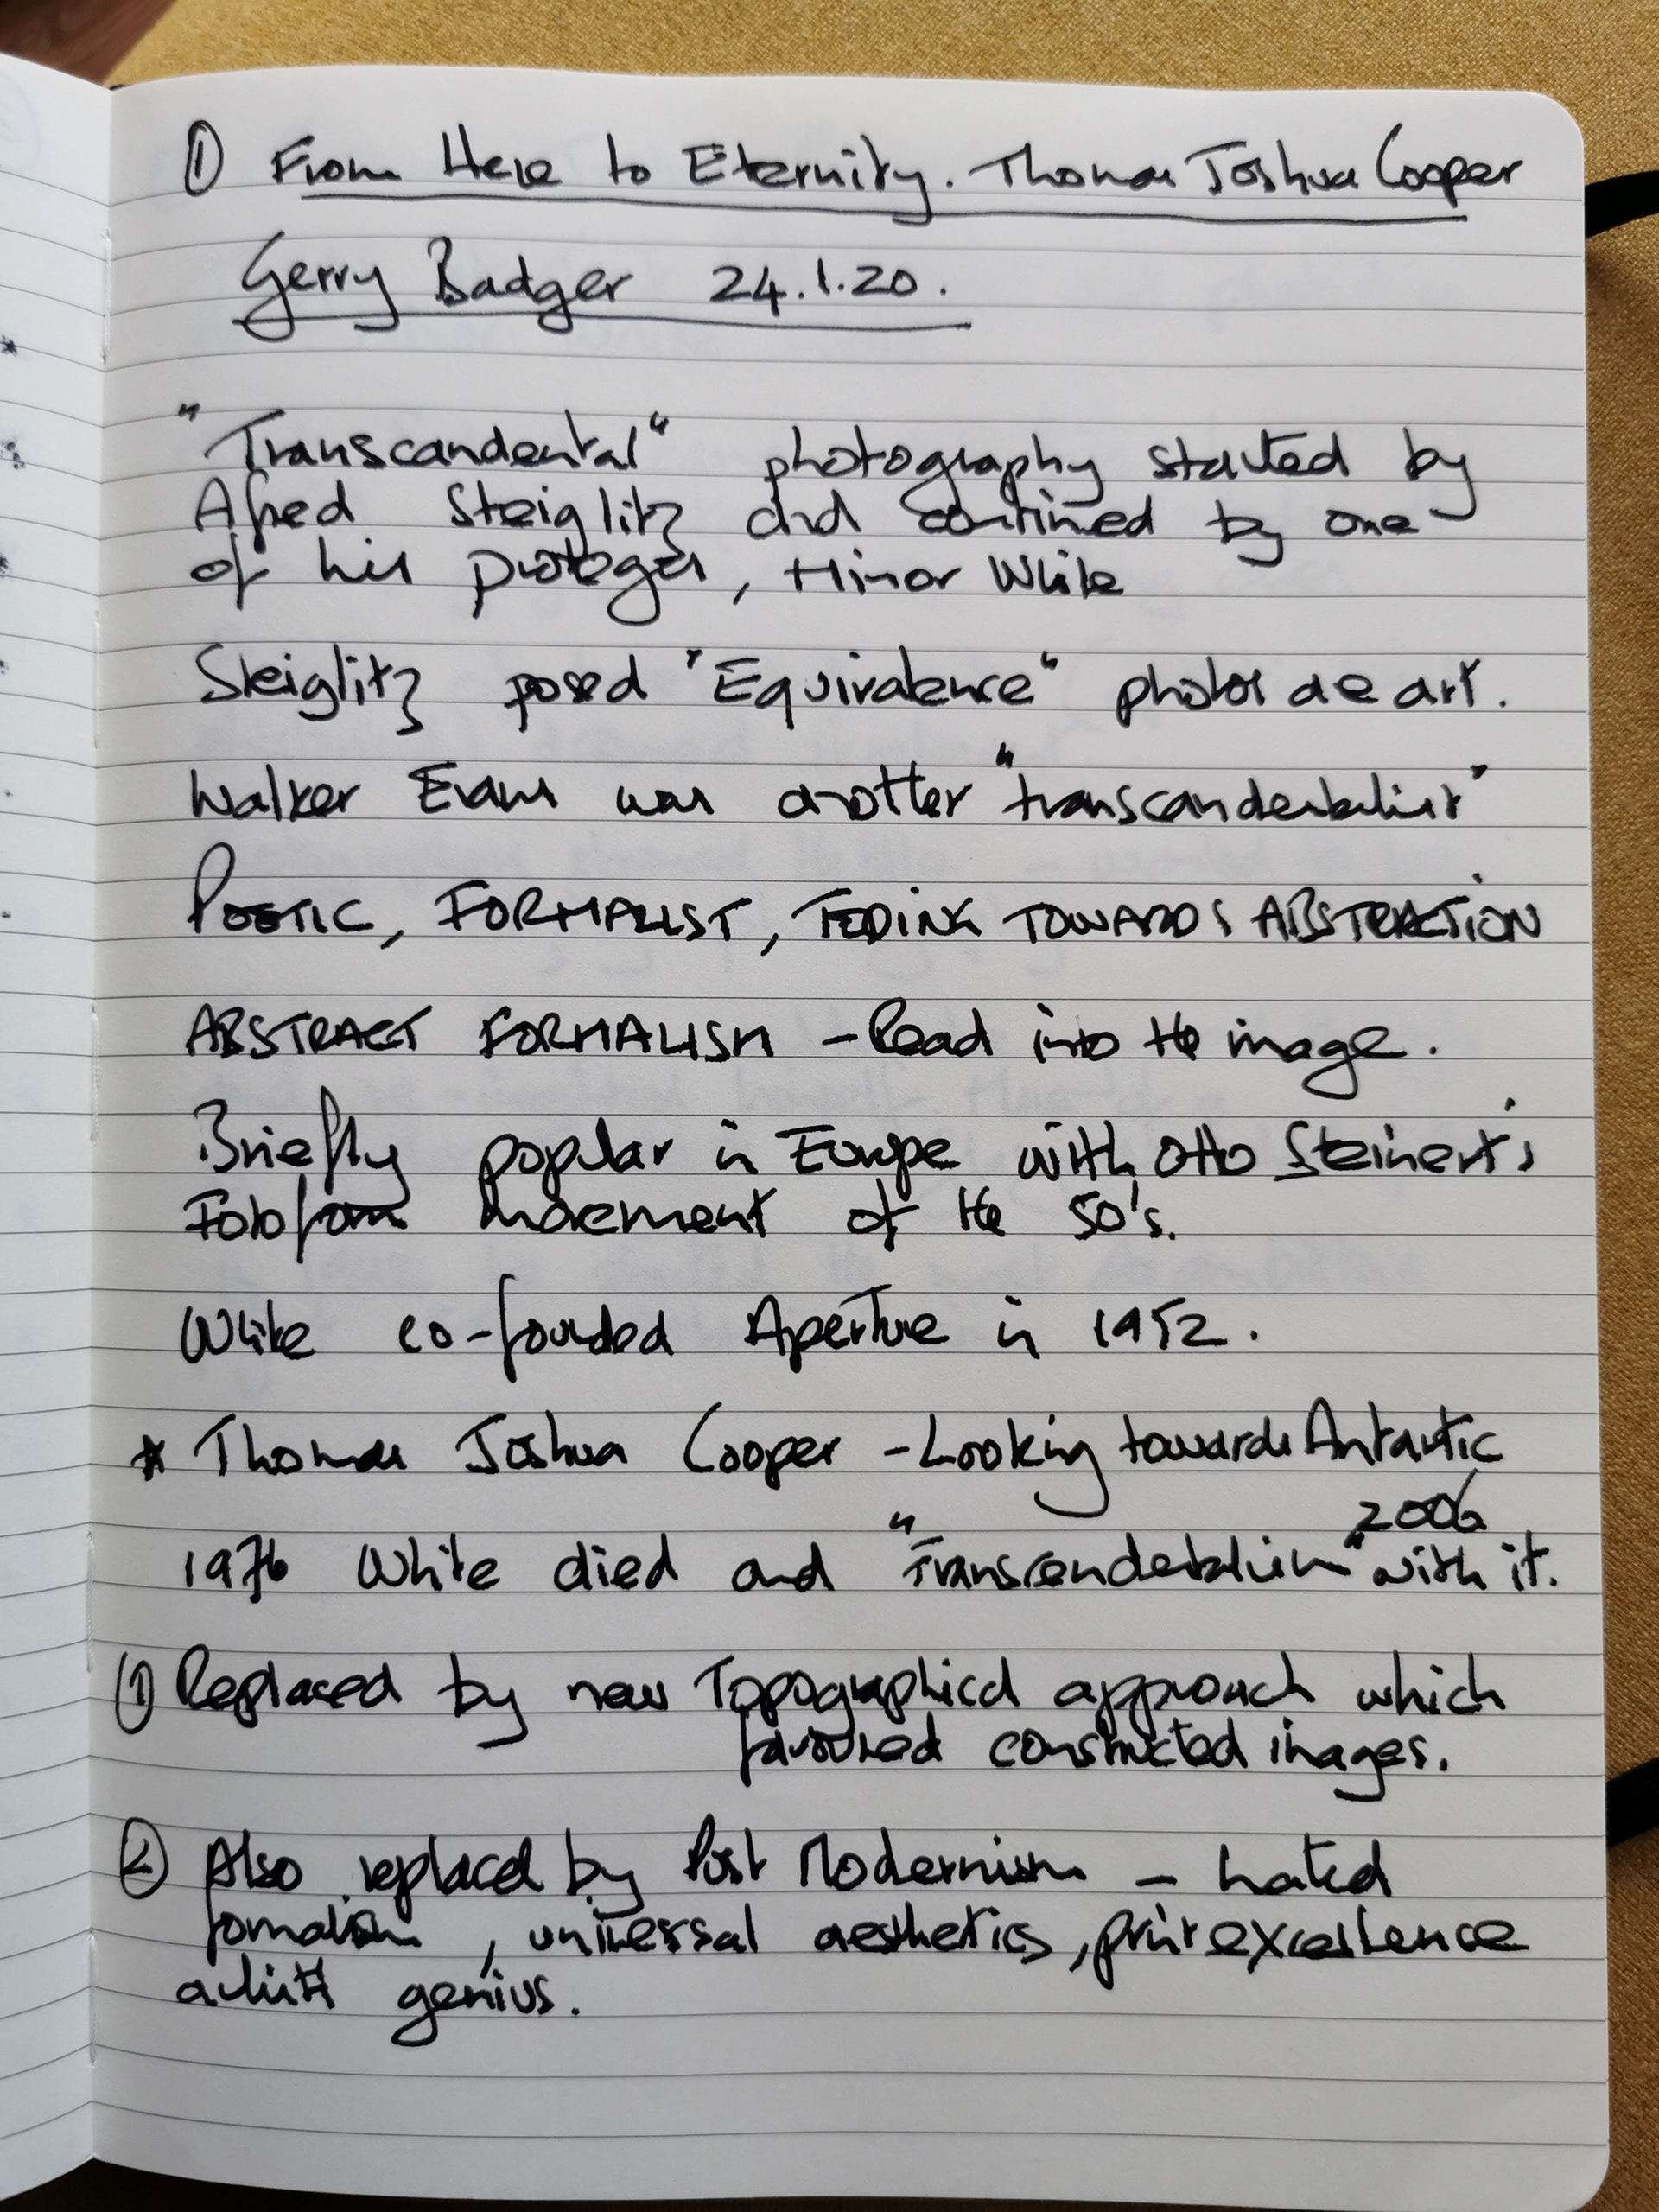 ① From Here to Eternity. Thomas Joshua Cooper
Gerry Badger 24.1.20.
"Transcandental" photography started by
Afred Steiglitz and continued by one
of his proteges, Minor White
Steiglitz posed "Equivalence" photos as art.
Walker Evans was another "transcandentalist"
POETIC, FORMALIST, TEDING TOWARDS ABSTRACTION
ABSTRACT FORMALISM - Read into the image.
Briefly popular in Europe with Otto Steinert's
Fotoform movement of the 50's.
White co-founded Aperture in 1952.
* Thomas Joshua Cooper - Looking towards Antartic
2006
1976 White died and "Transcendentalism" with it.
① Replaced by new Topographical approach which
favoured constructed images.
② Also replaced by Post Modernism - hated
formalism, universal aesthetics, print excellence
artistic genius.